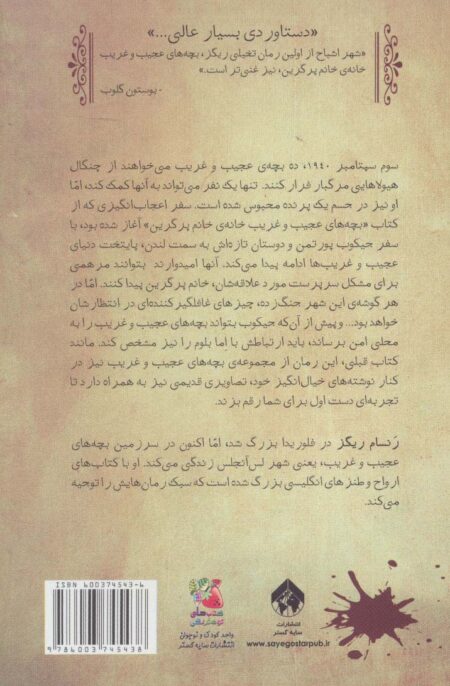 «دستاوردی بسیار عالی...»
«شهر اشباح از اولین رمان تخیلی ریگز، بچه‌های عجیب و غریب
خانه‌ی خانم پرگرین، نیز غنی‌تر است.»
- بوستون گلوب
سوم سپتامبر ۱۹۴۰، ده بچه‌ی عجیب و غریب می‌خواهند از چنگال
هیولاهایی مرگبار فرار کنند. تنها یک نفر می‌تواند به آنها کمک کند، امّا
او نیز در جسم یک پرنده محبوس شده است. سفر اعجاب‌انگیزی که از
کتاب «بچه‌های عجیب و غریب خانه‌ی خانم پرگرین» آغاز شده بود، با
سفر جیکوب پورتمن و دوستان تازه‌اش به سمت لندن، پایتخت دنیای
عجیب و غریب‌ها ادامه پیدا می‌کند. آنها امیدوارند بتوانند مرهمی
برای مشکل سرپرست مورد علاقه‌شان، خانم پرگرین پیدا کنند. امّا در
هر گوشه‌ی این شهر جنگ‌زده، چیزهای غافلگیرکننده‌ای در انتظارشان
خواهد بود... و پیش از آن‌که جیکوب بتواند بچه‌های عجیب و غریب را به
محلی امن برساند، باید ارتباطش با اما بلوم را نیز مشخص کند. مانند
کتاب قبلی، این رمان از مجموعه‌ی بچه‌های عجیب و غریب نیز در
کنار نوشته‌های خیال‌انگیز خود، تصاویری قدیمی نیز به همراه دارد تا
تجربه‌ای دست اول برای شما رقم بزند.
رَنسام ریگز در فلوریدا بزرگ شد، امّا اکنون در سرزمین بچه‌های
عجیب و غریب، یعنی شهر لس‌آنجلس زندگی می‌کند. او با کتاب‌های
ارواح و طنزهای انگلیسی بزرگ شده است که سبک رمان‌هایش را توجیه
می‌کند.
ISBN 600374543-6
9 786003 745438
کتاب‌های
واحد کودک و نوجوان
انتشارات سایه گستر
انتشارات
سایه گستر
www.sayegostarpub.ir